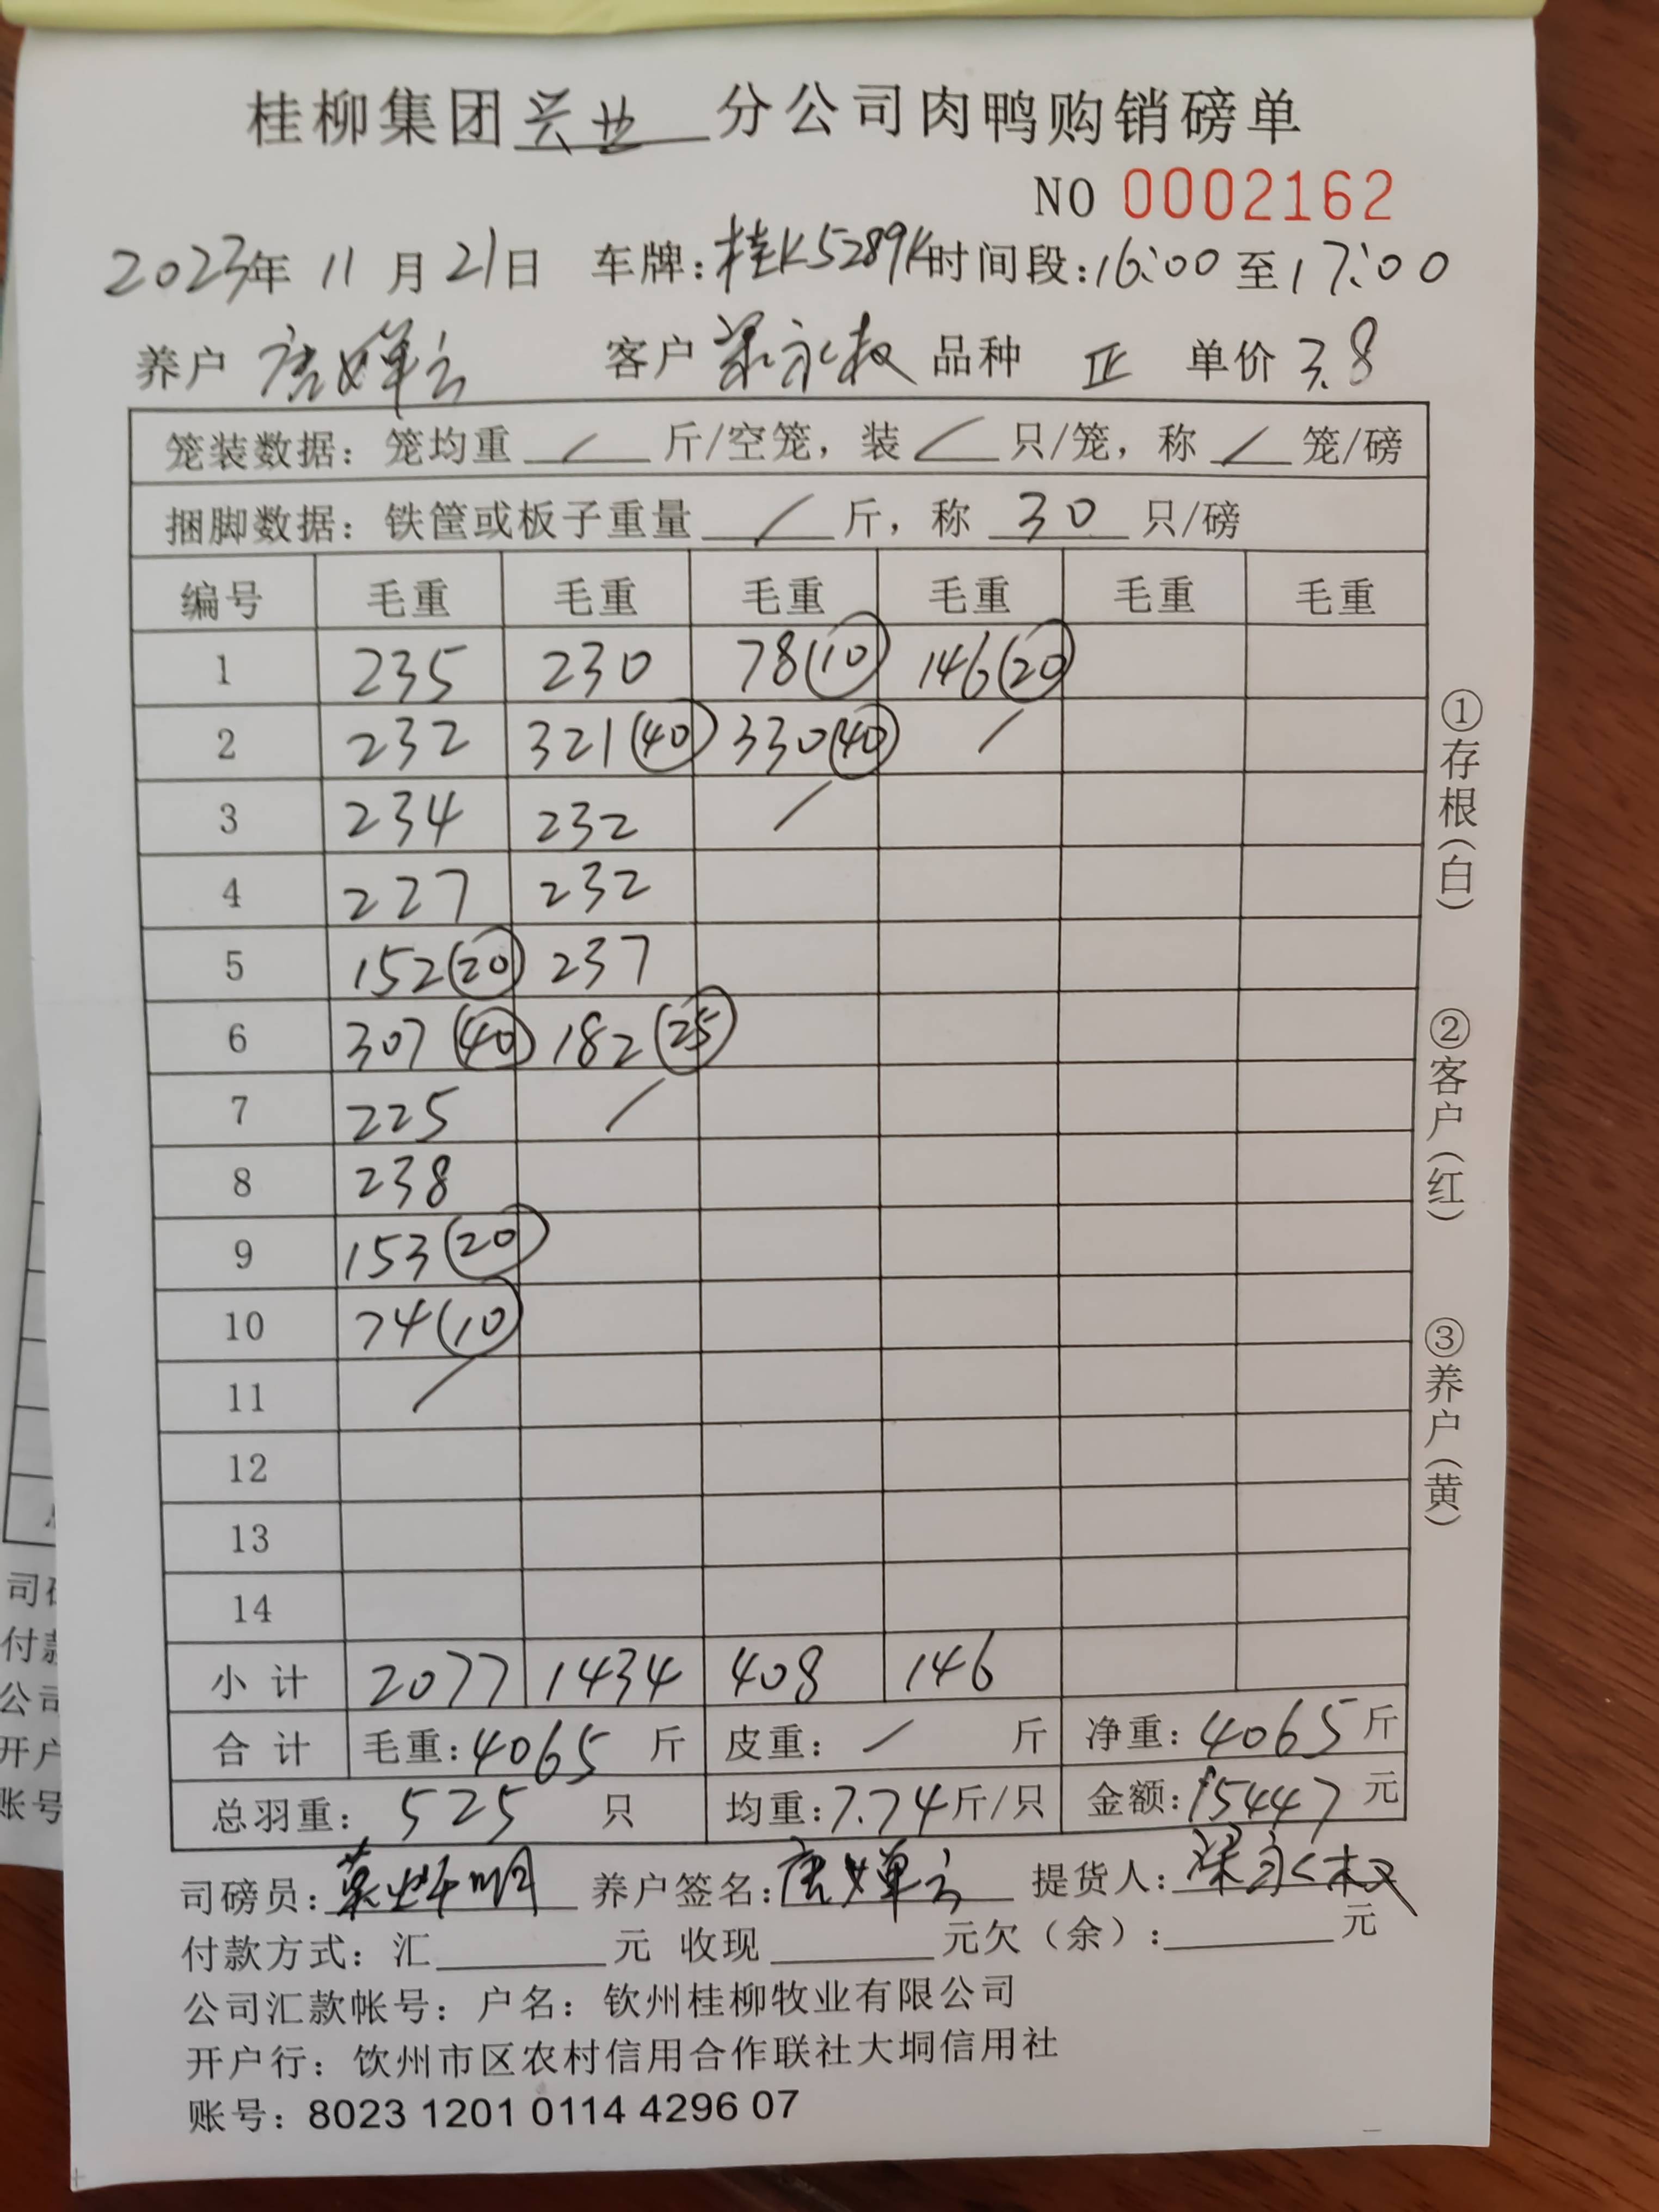 桂柳集团兴业分公司肉鸭购销磅单
NO 0002162
2023年 11 月 21日 车牌:桂K5289K时间段:16:00 至17:00
养户 唐婵云 客户 梁永权 品种 正 单价 3.8
笼装数据: 笼均重 / 斤/空笼, 装 / 只/笼, 称 / 笼/磅
捆脚数据: 铁筐或板子重量 / 斤, 称 30 只/磅
编号 毛重 毛重 毛重 毛重 毛重 毛重
1 235 230 78(10) 146(20)
2 232 321(40) 330(40) /
3 234 232 /
4 227 232
5 152(20) 237
6 307(40) 182(25)
7 225 /
8 238
9 153(20)
10 74(10)
11 /
12
13
14
小 计 2077 1434 408 146
合 计 毛重:4065 斤 皮重: / 斤 净重:4065斤
总羽重: 525 只 均重:7.74斤/只 金额:15447 元
司磅员: 养户签名:唐婵云 提货人:梁永权
付款方式: 汇 元 收现 元欠(余): 元
公司汇款帐号: 户名: 钦州桂柳牧业有限公司
开户行: 钦州市区农村信用合作联社大垌信用社
账号: 8023 1201 0114 4296 07
①存根(白)
②客户(红)
③养户(黄)
司磅
付款
公司
开户
账号